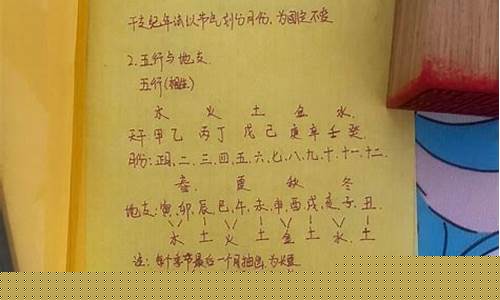 干支纪年法以节气划分月份，为固定不变
2.五行与地支
五行(相生)
木 火 土 金 水.
天干:甲乙 丙丁 戊己 庚辛 壬癸.
月份:正月,二、三、四,五、六、七、八、九、十、十一、十二.
春. 夏 秋 冬
地支:寅,卯,辰,巳,午,未,申,酉,戌,亥,子,丑.
木 土 火 土 金 土 水. 土
注: 每个季节最后一个月抽出,为